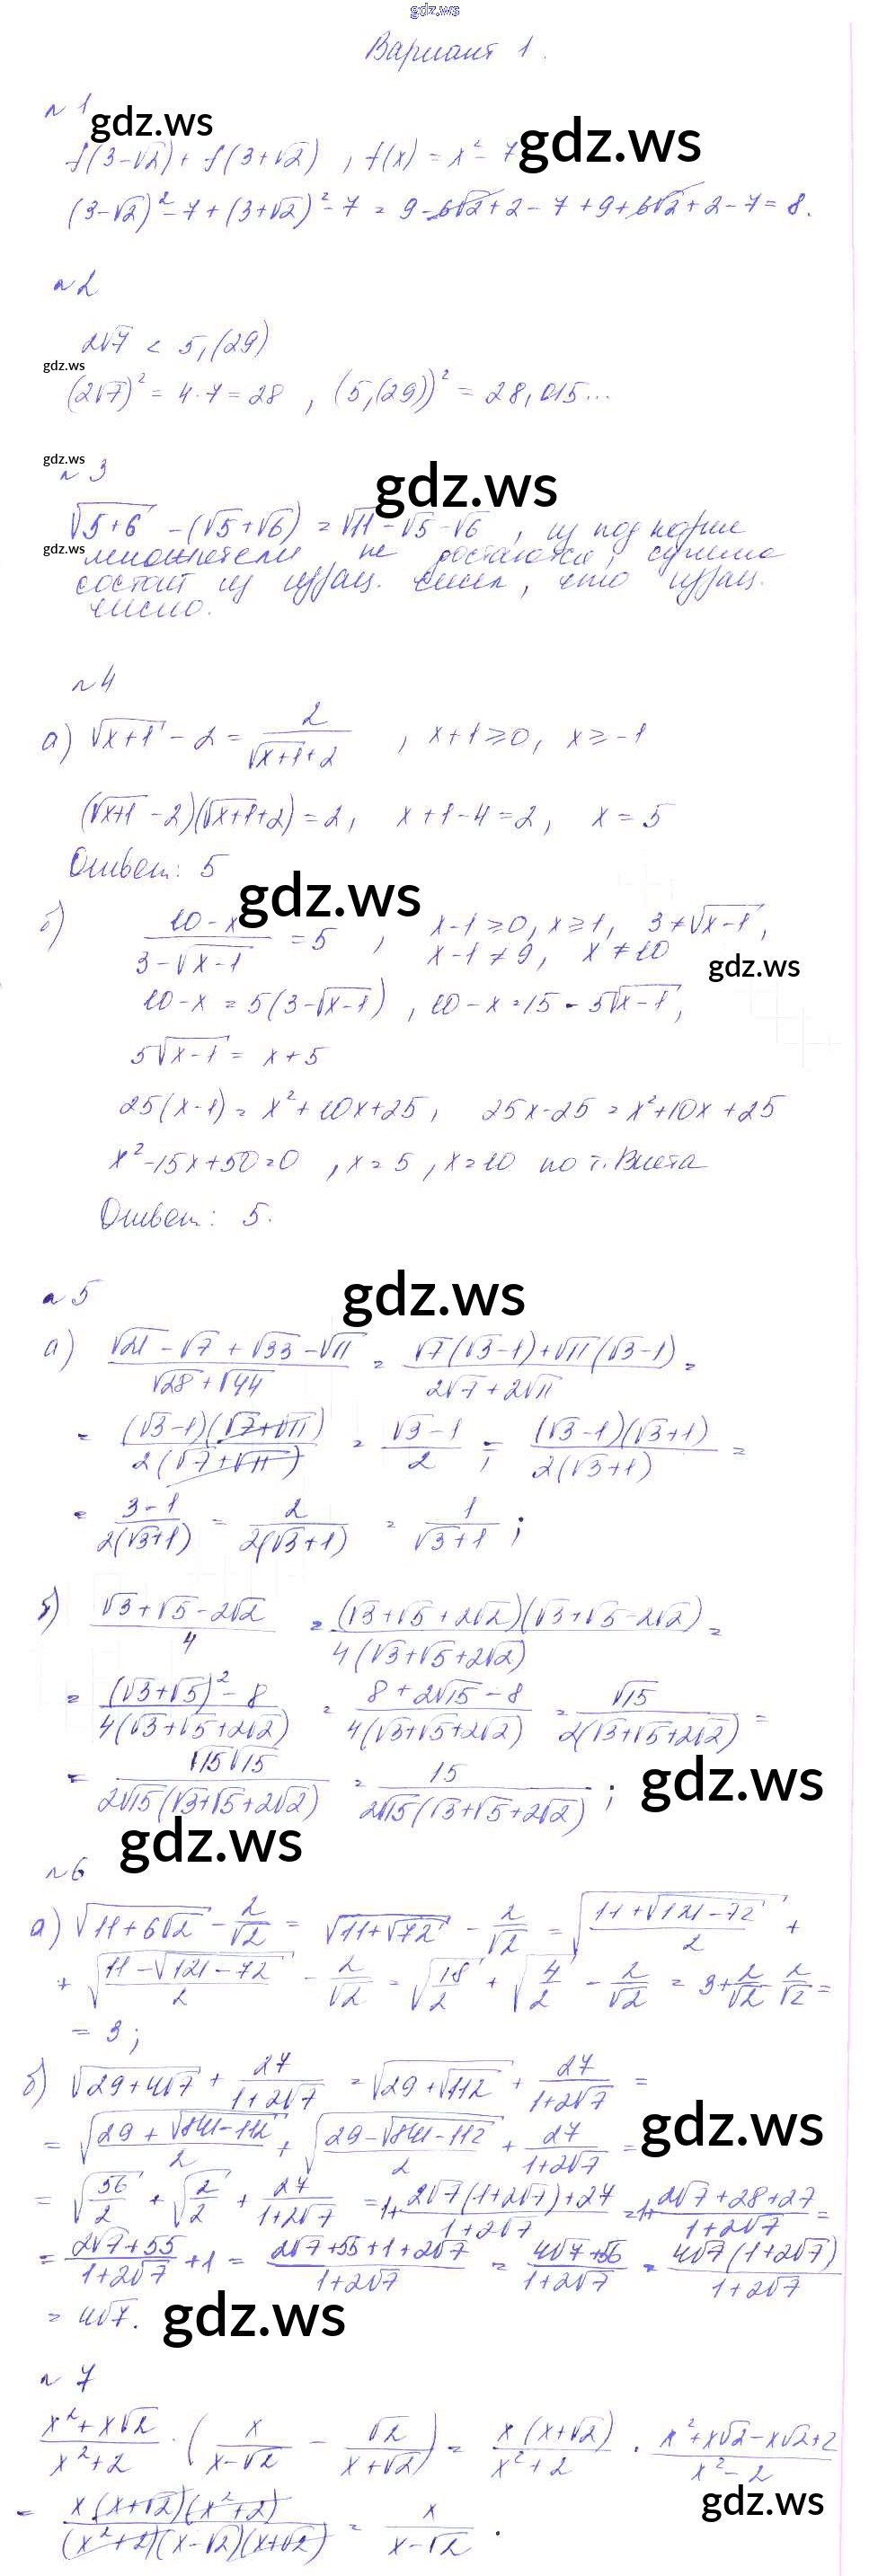 gdz.ws
Вариант 1.
№ 1
gdz.ws
f(3-√2) + f(3+√2) , f(x) = x² - 7
gdz.ws
(3-√2)² - 7 + (3+√2)² - 7 = 9 - 6√2 + 2 - 7 + 9 + 6√2 + 2 - 7 = 8.
№ 2
2√7 < 5,(29)
gdz.ws
(2√7)² = 4·7 = 28 , (5,(29))² = 28,015...
gdz.ws
№ 3
gdz.ws
√(5+6) - (√5+√6) = √11 - √5 - √6 , из под корня
gdz.ws
множители не достаются, сумма
состоит из иррац. чисел, это иррац.
число.
№ 4
а) √(x+1) - 2 = 2/(√(x+1)+2) , x+1 ≥ 0, x ≥ -1
(√(x+1) - 2)(√(x+1)+2) = 2, x+1-4 = 2, x = 5
Ответ: 5
gdz.ws
б) (10-x)/(3-√(x-1)) = 5 , x-1 ≥ 0, x ≥ 1, 3 ≠ √(x-1),
x-1 ≠ 9, x ≠ 10
gdz.ws
10-x = 5(3-√(x-1)) , 10-x = 15 - 5√(x-1),
5√(x-1) = x+5
25(x-1) = x²+10x+25, 25x-25 = x²+10x+25
x²-15x+50=0 , x=5, x=10 по т. Виета
Ответ: 5.
gdz.ws
№ 5
а) (√21 - √7 + √33 - √11)/(√28 + √44) = (√7(√3-1)+√11(√3-1))/(2√7+2√11) =
= ((√3-1)(√7+√11))/(2(√7+√11)) = (√3-1)/2 = ((√3-1)(√3+1))/(2(√3+1)) =
= (3-1)/(2(√3+1)) = 2/(2(√3+1)) = 1/(√3+1) ;
б) (√3+√5-2√2)/4 = ((√3+√5+2√2)(√3+√5-2√2))/(4(√3+√5+2√2)) =
= ((√3+√5)²-8)/(4(√3+√5+2√2)) = (8+2√15-8)/(4(√3+√5+2√2)) = √15/(2(√3+√5+2√2)) =
= (√15√15)/(2√15(√3+√5+2√2)) = 15/(2√15(√3+√5+2√2)) ;
gdz.ws
gdz.ws
№ 6
а) √(11+6√2) - 2/√2 = √(11+√72) - 2/√2 = √((11+√(121-72))/2) +
+ √((11-√(121-72))/2) - 2/√2 = √(18/2) + √(4/2) - 2/√2 = 3 + 2/√2 - 2/√2 =
= 3;
б) √(29+4√7) + 27/(1+2√7) = √(29+√112) + 27/(1+2√7) =
gdz.ws
= √((29+√(841-112))/2) + √((29-√(841-112))/2) + 27/(1+2√7) =
= √(56/2) + √(2/2) + 27/(1+2√7) = 1+ (2√7(1+2√7)+27)/(1+2√7) = 1+ (2√7+28+27)/(1+2√7) =
= (2√7+55)/(1+2√7) + 1 = (2√7+55+1+2√7)/(1+2√7) = (4√7+56)/(1+2√7) = (4√7(1+2√7))/(1+2√7)
= 4√7.
gdz.ws
№ 7
(x²+x√2)/(x²+2) · (x/(x-√2) - √2/(x+√2)) = (x(x+√2))/(x²+2) · (x²+x√2-x√2+2)/(x²-2)
gdz.ws
= (x(x+√2)(x²+2))/((x²+2)(x-√2)(x+√2)) = x/(x-√2) .